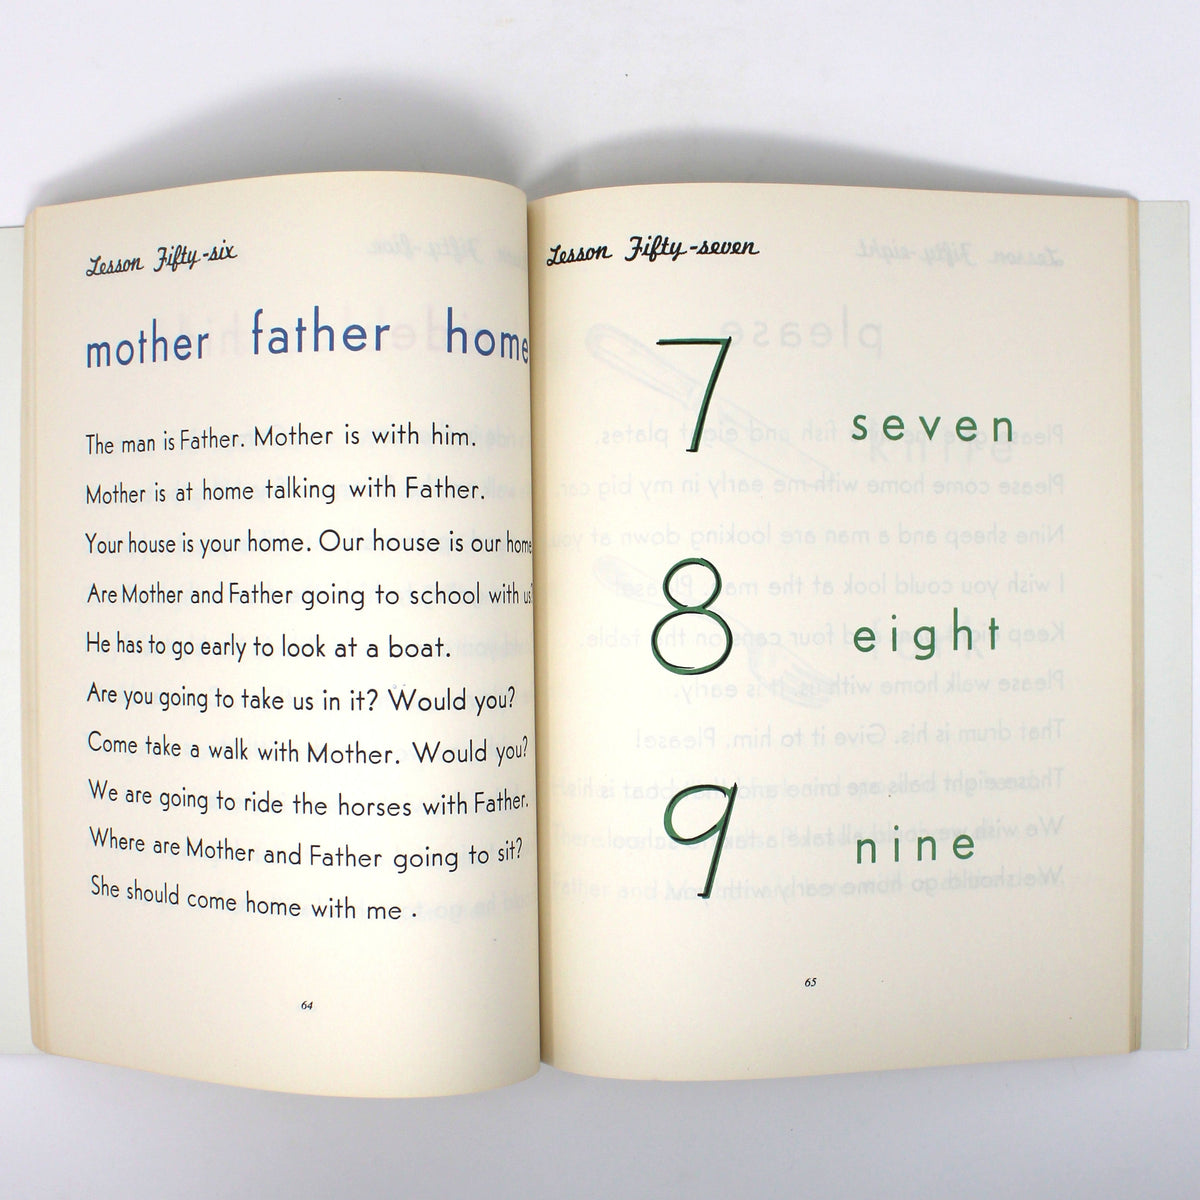 Lesson Fifty-six
mother father home
The man is Father. Mother is with him.
Mother is at home talking with Father.
Your house is your home. Our house is our home
Are Mother and Father going to school with us?
He has to go early to look at a boat.
Are you going to take us in it? Would you?
Come take a walk with Mother. Would you?
We are going to ride the horses with Father.
Where are Mother and Father going to sit?
She should come home with me .
64
Lesson Fifty-seven
7 seven
8 eight
9 nine
65